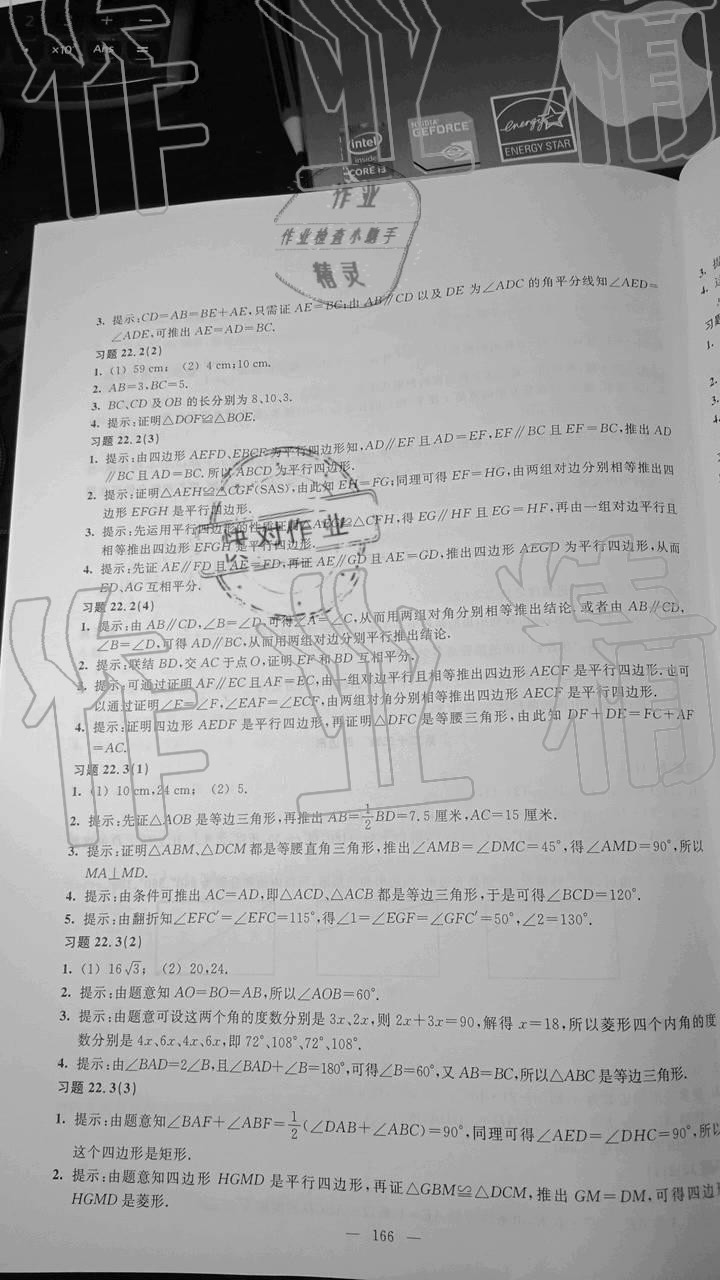 2 3 + −
×10 Ans =
intel inside CORE i3
NVIDIA GEFORCE
energy
ENERGY STAR
作业精
作业
作业检查小助手
精灵
3. 提示:CD=AB=BE+AE,只需证 AE=BC;由 AB∥CD 以及 DE 为∠ADC 的角平分线知∠AED=
∠ADE,可推出 AE=AD=BC.
习题 22.2(2)
1. (1) 59 cm; (2) 4 cm;10 cm.
2. AB=3,BC=5.
3. BC、CD 及 OB 的长分别为 8、10、3.
4. 提示:证明△DOF≌△BOE.
习题 22.2(3)
1. 提示:由四边形 AEFD、EBCF 为平行四边形知,AD∥EF 且 AD=EF,EF∥BC 且 EF=BC,推出 AD
∥BC 且 AD=BC.所以 ABCD 为平行四边形.
2. 提示:证明△AEH≌△CGF(SAS),由此知 EH=FG;同理可得 EF=HG,由两组对边分别相等推出四
边形 EFGH 是平行四边形.
3. 提示:先运用平行四边形的性质证明△AEG≌△CFH,得 EG∥HF 且 EG=HF,再由一组对边平行且
相等推出四边形 EFGH 是平行四边形.
4. 提示:先证 AE∥FD 且 AE=FD,再证 AE∥GD 且 AE=GD,推出四边形 AEGD 为平行四边形,从而
ED、AG 互相平分.
快对作业
习题 22.2(4)
1. 提示:由 AB∥CD,∠B=∠D,可得∠A=∠C,从而用两组对角分别相等推出结论.或者由 AB∥CD,
∠B=∠D,可得 AD∥BC,从而用两组对边分别平行推出结论.
2. 提示:联结 BD,交 AC 于点 O,证明 EF 和 BD 互相平分.
3. 提示:可通过证明 AF∥EC 且 AF=EC,由一组对边平行且相等推出四边形 AECF 是平行四边形.也可
以通过证明∠E=∠F,∠EAF=∠ECF,由两组对角分别相等推出四边形 AECF 是平行四边形.
4. 提示:证明四边形 AEDF 是平行四边形,再证明△DFC 是等腰三角形,由此知 DF+DE=FC+AF
=AC.
作业精
习题 22.3(1)
1. (1) 10 cm,24 cm; (2) 5.
2. 提示:先证△AOB 是等边三角形,再推出 AB=1/2BD=7.5 厘米,AC=15 厘米.
3. 提示:证明△ABM、△DCM 都是等腰直角三角形,推出∠AMB=∠DMC=45°,得∠AMD=90°,所以
MA⊥MD.
4. 提示:由条件可推出 AC=AD,即△ACD、△ACB 都是等边三角形,于是可得∠BCD=120°.
5. 提示:由翻折知∠EFC′=∠EFC=115°,得∠1=∠EGF=∠GFC′=50°,∠2=130°.
习题 22.3(2)
1. (1) 16√3; (2) 20,24.
2. 提示:由题意知 AO=BO=AB,所以∠AOB=60°.
3. 提示:由题意可设这两个角的度数分别是 3x、2x,则 2x+3x=90,解得 x=18,所以菱形四个内角的度
数分别是 4x、6x、4x、6x,即 72°、108°、72°、108°.
4. 提示:由∠BAD=2∠B,且∠BAD+∠B=180°,可得∠B=60°,又 AB=BC,所以△ABC 是等边三角形.
习题 22.3(3)
1. 提示:由题意知∠BAF+∠ABF=1/2(∠DAB+∠ABC)=90°,同理可得∠AED=∠DHC=90°,所以
这个四边形是矩形.
2. 提示:由题意知四边形 HGMD 是平行四边形,再证△GBM≌△DCM,推出 GM=DM,可得四边形
HGMD 是菱形.
— 166 —